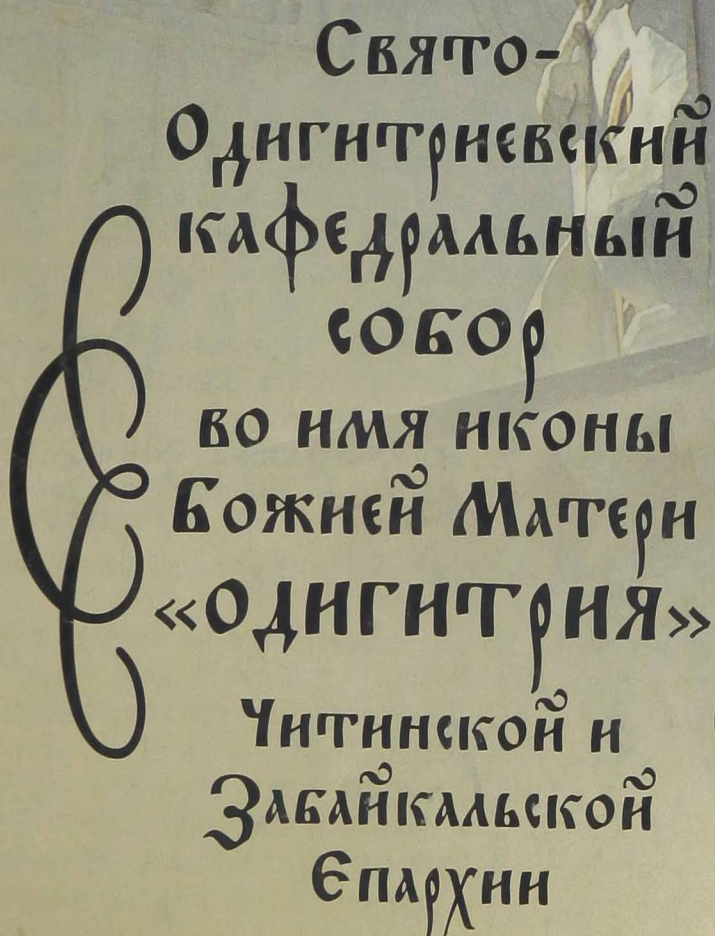 Свято-
Одигитриевский
кафедральный
собор
во имя иконы
Божией Матери
«ОДИГИТРИЯ»
Читинской и
Забайкальской
Епархии